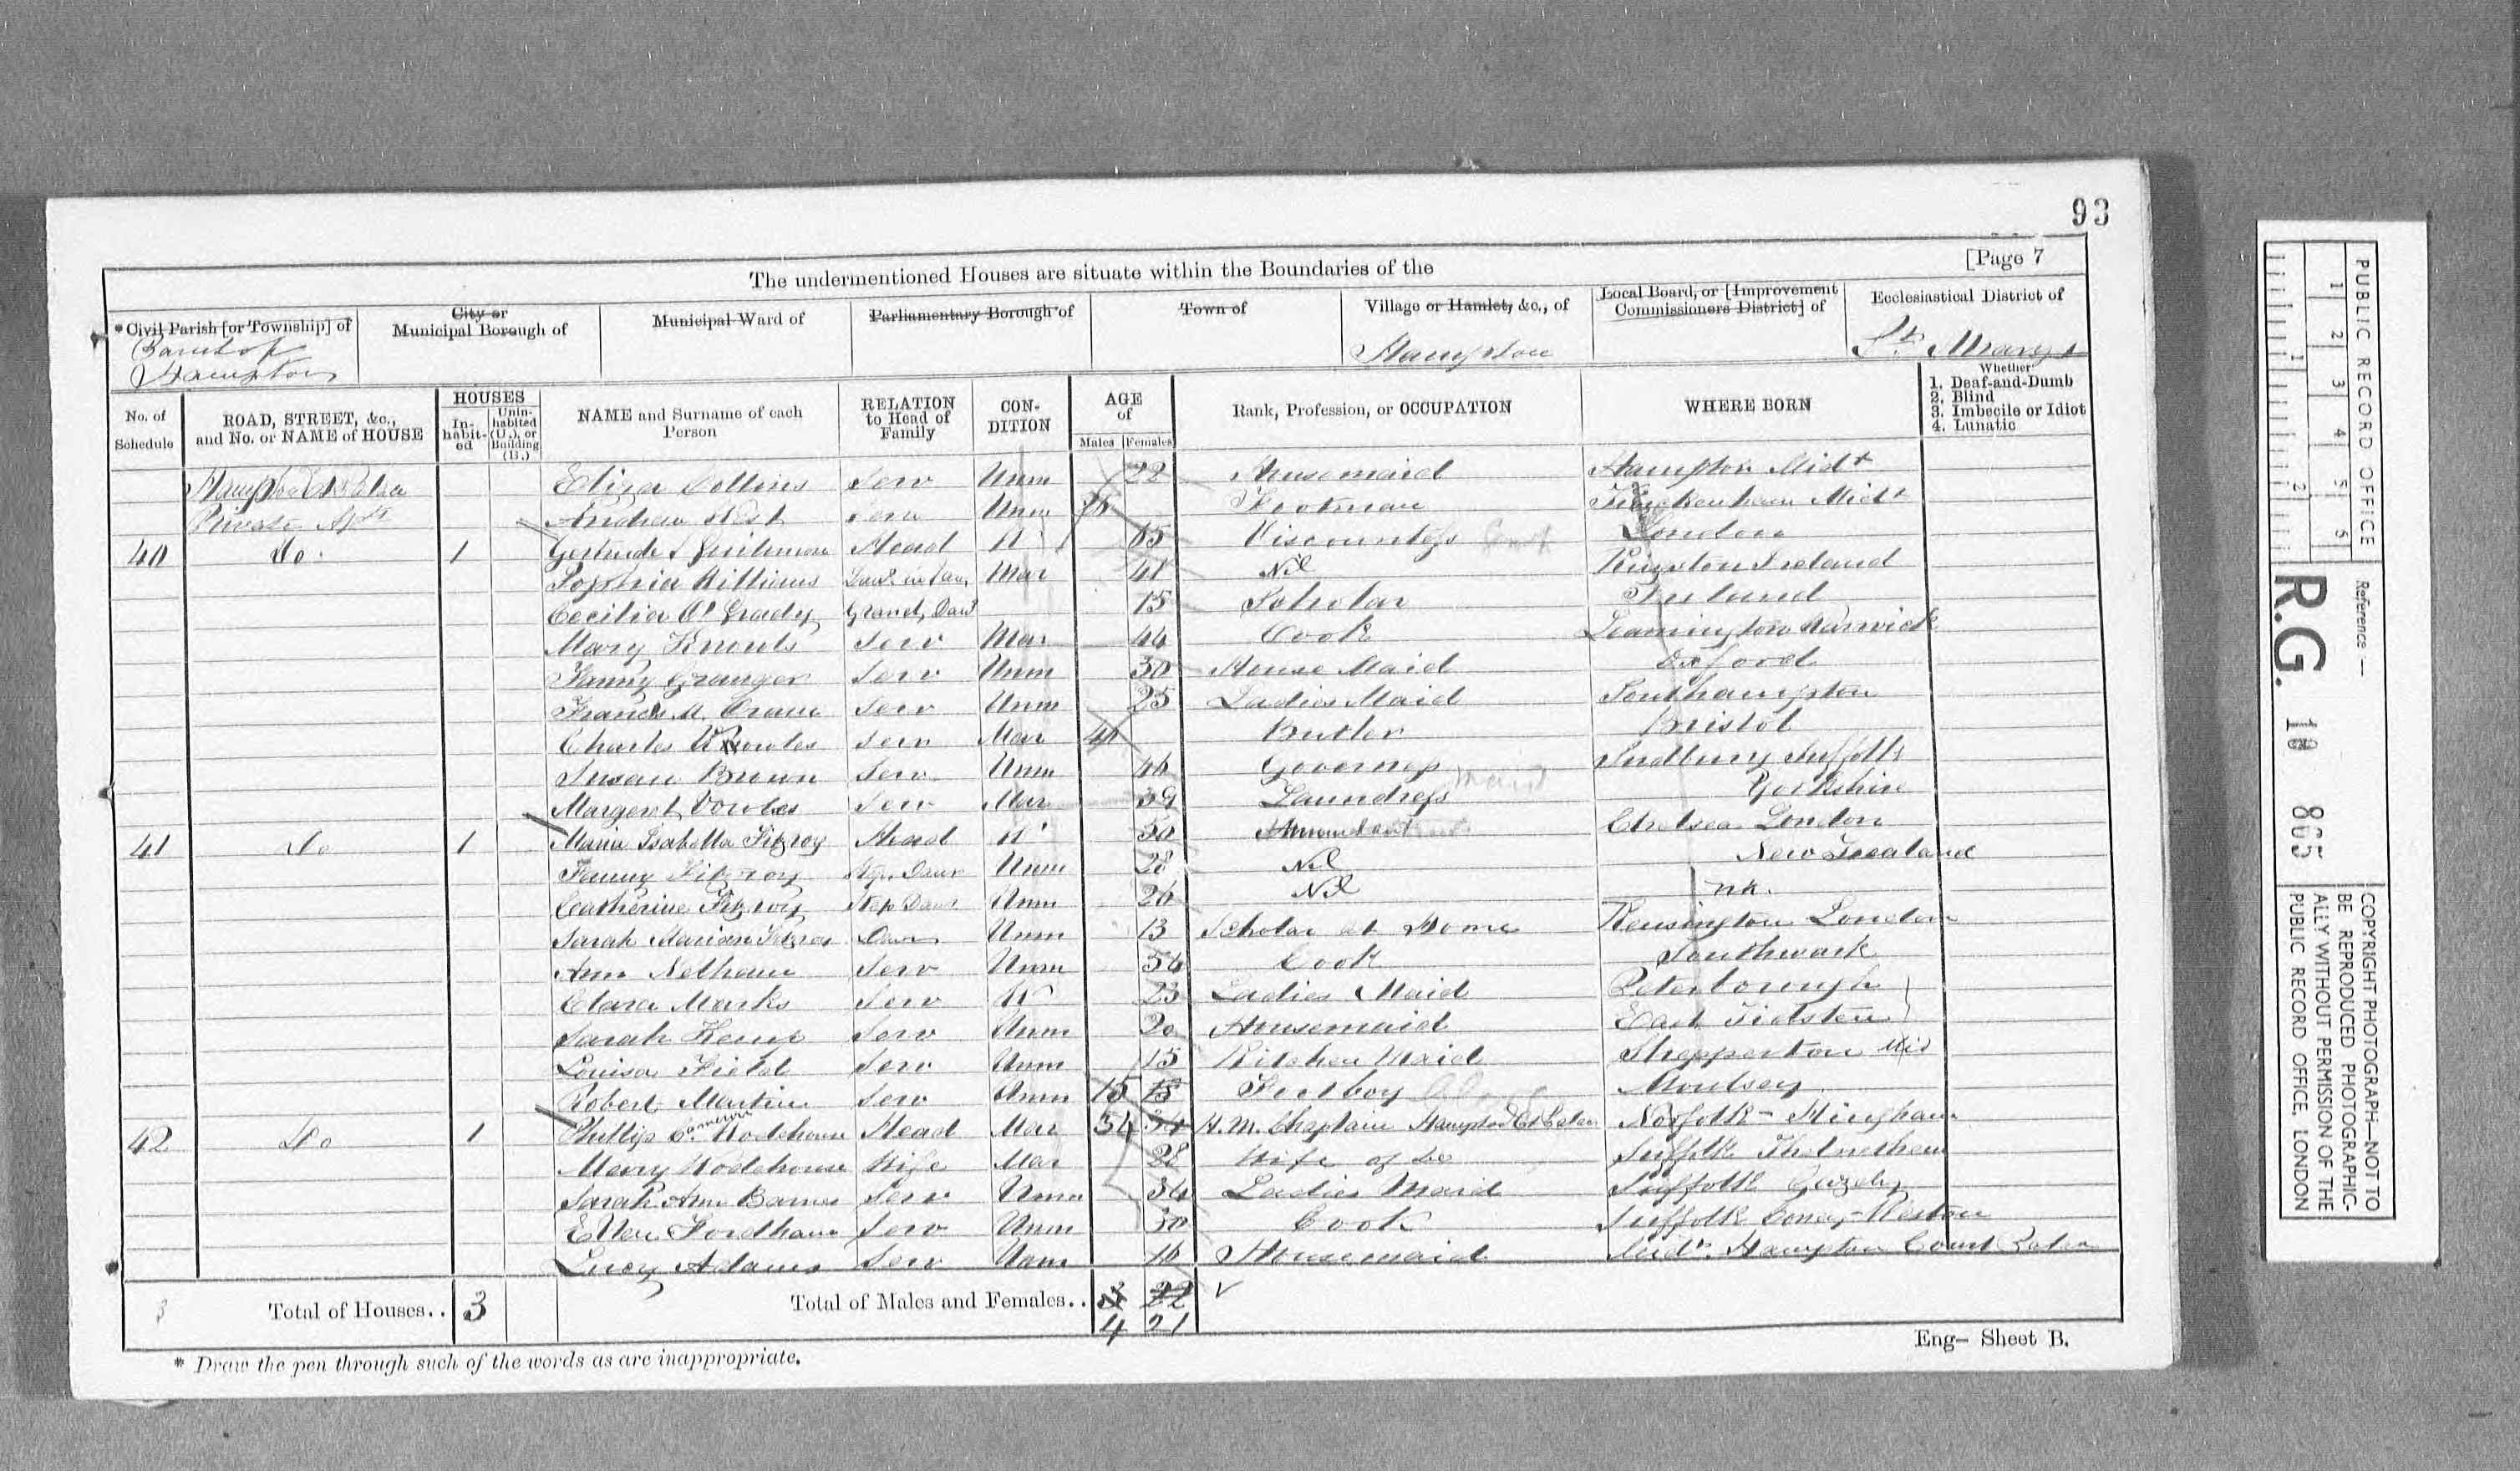 93
[Page 7
The undermentioned Houses are situate within the Boundaries of the
* Civil Parish [or Township] of
City or Municipal Borough of
Municipal Ward of
Parliamentary Borough of
Town of
Village or Hamlet, &c., of
Local Board, or [Improvement Commissioners District] of
Ecclesiastical District of
Hampton
Hampton
St. Mary's
No. of Schedule
ROAD, STREET, &c., and No. or NAME of HOUSE
HOUSES
In-habit-ed
Unin-habited (U.), or Building (B.)
NAME and Surname of each Person
RELATION to Head of Family
CON-DITION
AGE of
Males
Females
Rank, Profession, or OCCUPATION
WHERE BORN
Whether
1. Deaf-and-Dumb
2. Blind
3. Imbecile or Idiot
4. Lunatic
Eliza Collins Serv Unm 22 Housemaid Hampton Midx
Private Apt Andrew West Serv Unm Footman Twickenham Midx
40 Do. 1 Gertrude Head W 65 Viscountess London
Sophia Williams Daur in law Mar 41 Nil Ireland
Cecilia O'Grady Grand Daur 15 Scholar Ireland
Mary Knowls Serv Mar 44 Cook Leamington Warwick
Fanny Granger Serv Unm 30 House Maid Oxford
Frances M. Serv Unm 25 Ladies Maid Southampton
Charles Serv Mar Butler Bristol
Susan Brown Serv Unm Governess Sudbury Suffolk
Margeret Vowles Serv Mar 39 Laundress Yorkshire
41 Do 1 Maria Isabella Fitzroy Head W 50 Chelsea London
Fanny Fitzroy Step Daur Unm 28 Nil New Zealand
Catherine Fitzroy Step Daur Unm 26 Nil nk.
Sarah Marian Fitzroy Daur Unm 13 Scholar at Home Kensington London
Ann Serv Unm 54 Cook Southwark
Clara Marks Serv W 23 Ladies Maid Peterborough
Sarah Kemp Serv Unm 20 Housemaid East
Louisa Field Serv Unm 15 Kitchen Maid Shepperton Mid
Robert Martin Serv Unm 15 15 Moulsey
42 Do 1 Phillip Cameron Wodehouse Head Mar 34 34 H. M. Chaplain Hampton Ct Palace Norfolk - Hingham
Mary Wodehouse Wife Mar 28 Wife of Do Suffolk Thelnetham
Sarah Ann Barnes Serv Unm 34 Ladies Maid Suffolk Gazeley
Ellen Fordham Serv Unm 30 Cook Suffolk Coney-Weston
Lucy Adams Serv Unm 16 Housemaid Midx. Hampton Court Palace
3 Total of Houses.. 3 Total of Males and Females.. 3 22
4 21
* Draw the pen through such of the words as are inappropriate.
Eng- Sheet B.
PUBLIC RECORD OFFICE
1 2 3 4 5 6
1 2
Reference :—
R.G. 10 865
COPYRIGHT PHOTOGRAPH—NOT TO
BE REPRODUCED PHOTOGRAPHIC-
ALLY WITHOUT PERMISSION OF THE
PUBLIC RECORD OFFICE, LONDON